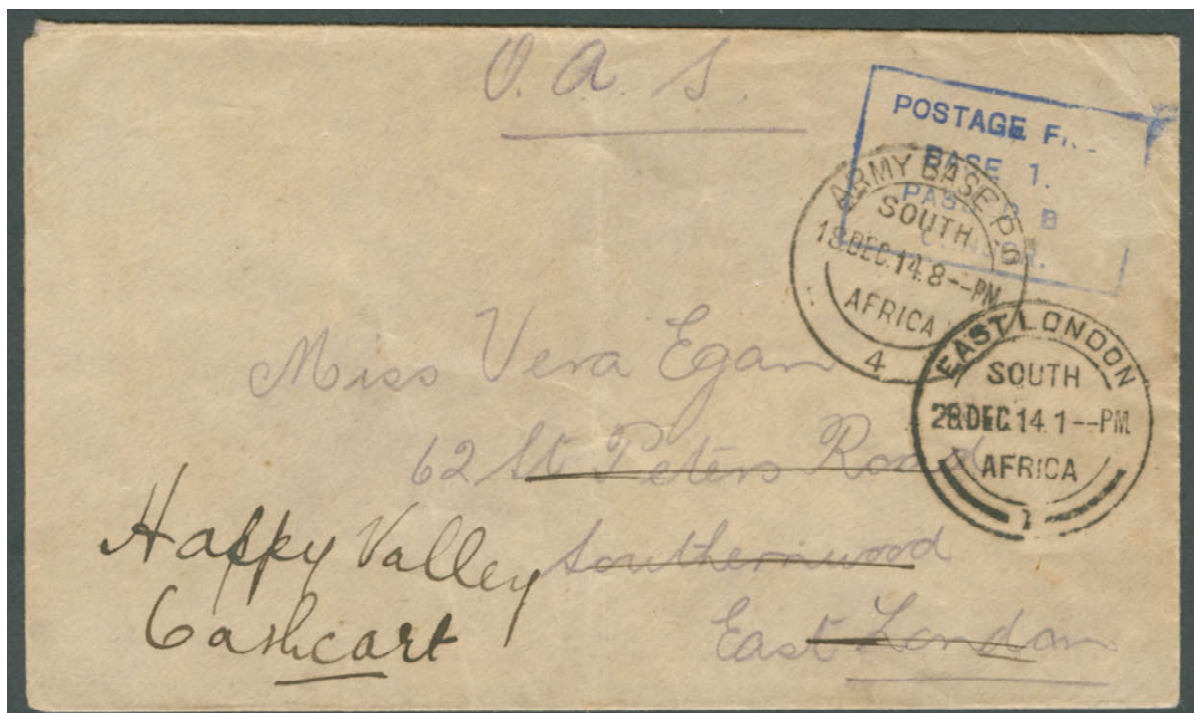 O. A. S.
POSTAGE
BASE 1.
ARMY BASE P.O
SOUTH
18.DEC.14.8--PM
AFRICA
4
EAST LONDON
SOUTH
DEC.14.1--PM.
AFRICA
1
Miss Vera Egan
62 St Peters Road
Southernwood
East London
Happy Valley
Cathcart